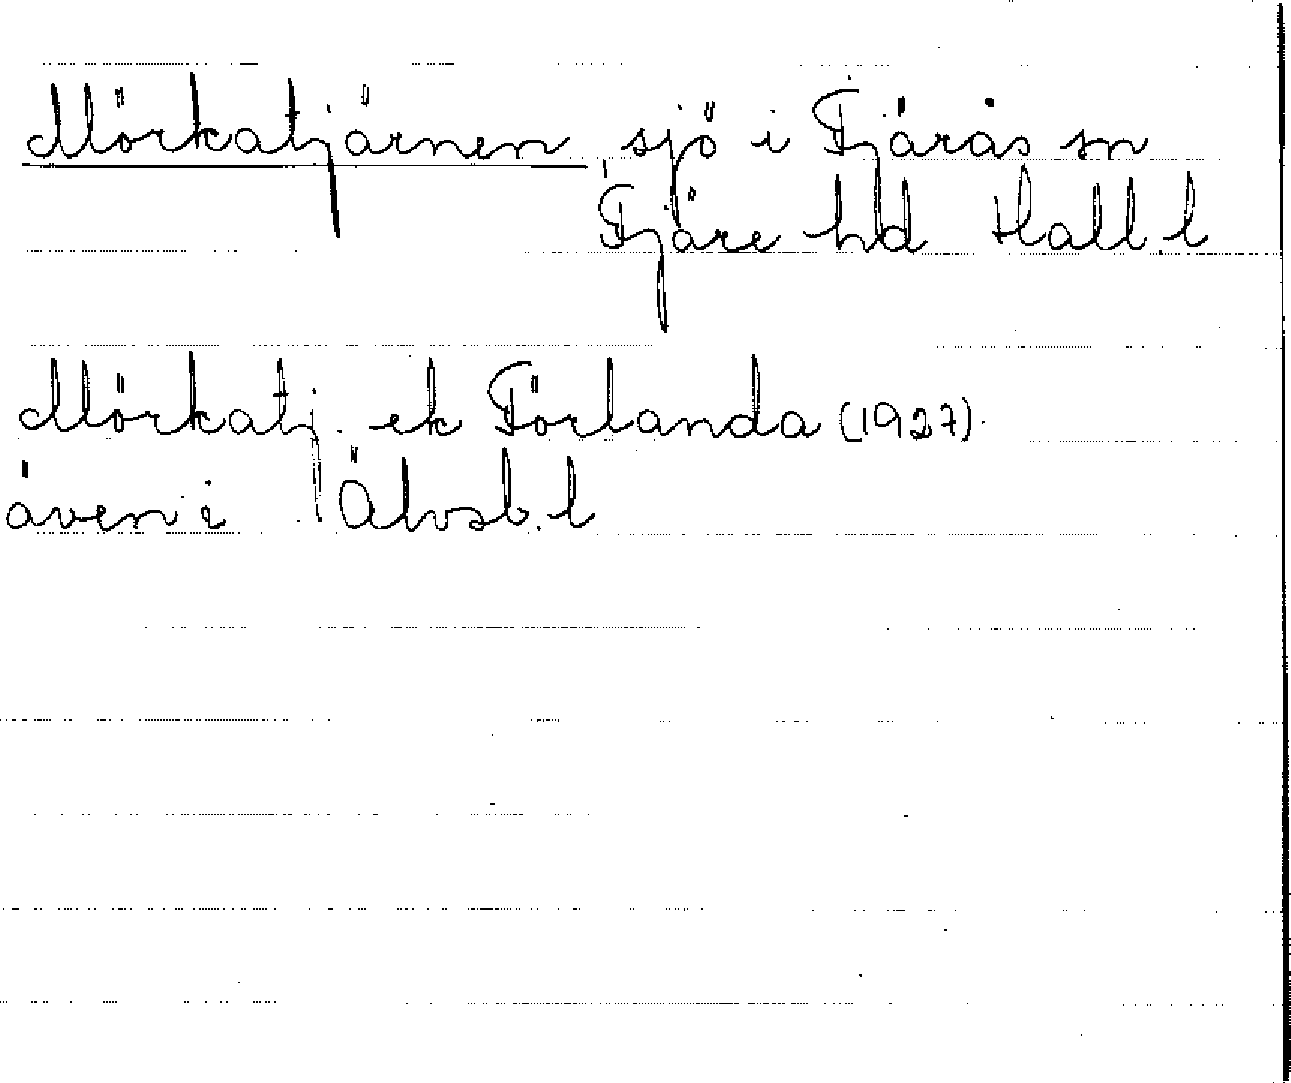 Mörkatjärnen sjö i Fjärås sn
Fjäre hd Hall. l
Mörkatj. ek Förlanda (1927).
även i Älvsb. l